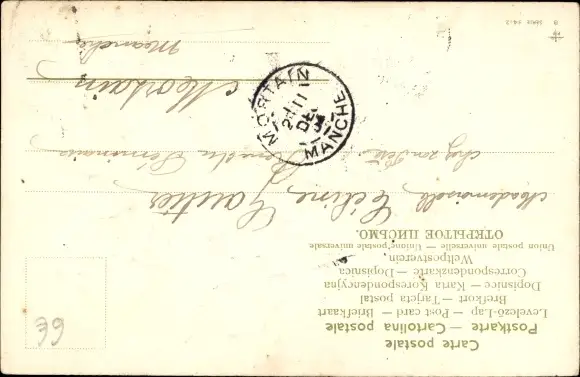 Carte postale
Postkarte — Cartolina postale
Levelező-Lap — Post card — Briefkaart
Brefkort — Tarjeta postal
Dopisnice — Karta Korespondencyjna
Correspondenzkarte — Dopisnica
Weltpostverein
Union postale universelle — Unione postale universale
ОТКРЫТОЕ ПИСЬМО.
Mademoiselle Céline Gautier
chez son Père
Mortain
Manche
MORTAIN
11
DE
MANCHE
39